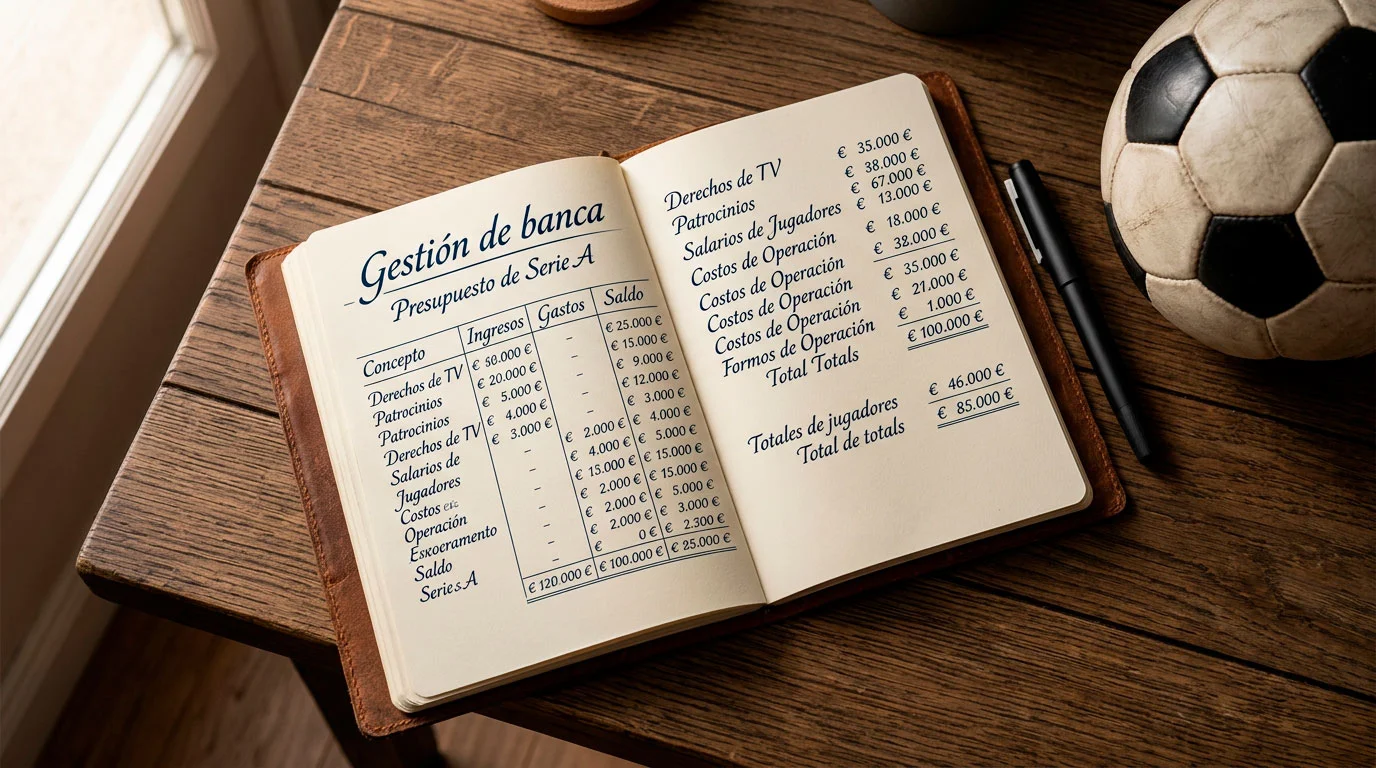 Gestión de banca
Presupuesto de Serie A
Concepto Ingresos Gastos Saldo
Derechos de TV € 50.000 € - € 25.000 €
Patrocinios € 20.000 € - € 15.000 €
Patrocinios € 5.000 € - € 9.000 €
Derechos de TV € 4.000 € - € 12.000 €
Salarios de € 3.000 € € 2.000 € € 3.000 €
Jugadores - € 4.000 € € 4.000 €
Costos - € 15.000 € € 5.000 €
Operación - € 2.000 € € 15.000 €
Eskoeramento - € 2.000 € € 5.000 €
Saldo - € 2.000 € € 3.000 €
Series A - € 0 € € 2.300 €
€ 120.000 € € 100.000 € € 25.000 €
Derechos de TV € 35.000 €
Patrocinios € 38.000 €
Salarios de Jugadores € 67.000 €
Costos de Operación € 13.000 €
Costos de Operación € 18.000 €
Costos de Operación € 32.000 €
Costos de Operación € 35.000 €
Formos de Operación € 21.000 €
Total Totals € 1.000 €
€ 100.000 €
Totales de jugadores € 46.000 €
Total de totals € 85.000 €